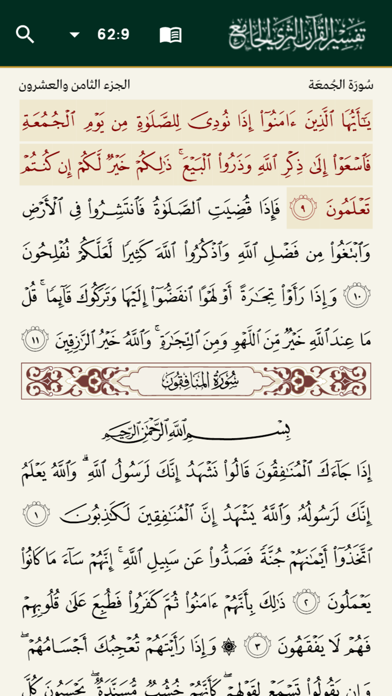 تفسير القرآن الثري الجامع
62:9
سُورَة الجُمعَة
الجزء الثامن والعشرون
يَٰٓأَيُّهَا ٱلَّذِينَ ءَامَنُوٓا۟ إِذَا نُودِىَ لِلصَّلَوٰةِ مِن يَوْمِ ٱلْجُمُعَةِ
فَٱسْعَوْا۟ إِلَىٰ ذِكْرِ ٱللَّهِ وَذَرُوا۟ ٱلْبَيْعَ ۚ ذَٰلِكُمْ خَيْرٌ لَّكُمْ إِن كُنتُمْ
تَعْلَمُونَ ٩ فَإِذَا قُضِيَتِ ٱلصَّلَوٰةُ فَٱنتَشِرُوا۟ فِى ٱلْأَرْضِ
وَٱبْتَغُوا۟ مِن فَضْلِ ٱللَّهِ وَٱذْكُرُوا۟ ٱللَّهَ كَثِيرًا لَّعَلَّكُمْ تُفْلِحُونَ
١٠ وَإِذَا رَأَوْا۟ تِجَٰرَةً أَوْ لَهْوًا ٱنفَضُّوٓا۟ إِلَيْهَا وَتَرَكُوكَ قَآئِمًا ۚ قُلْ
مَا عِندَ ٱللَّهِ خَيْرٌ مِّنَ ٱللَّهْوِ وَمِنَ ٱلتِّجَٰرَةِ ۚ وَٱللَّهُ خَيْرُ ٱلرَّٰزِقِينَ ١١
سُورَةُ المُنَافِقُونَ
بِسْمِ ٱللَّهِ ٱلرَّحْمَٰنِ ٱلرَّحِيمِ
إِذَا جَآءَكَ ٱلْمُنَٰفِقُونَ قَالُوا۟ نَشْهَدُ إِنَّكَ لَرَسُولُ ٱللَّهِ ۗ وَٱللَّهُ يَعْلَمُ
إِنَّكَ لَرَسُولُهُۥ وَٱللَّهُ يَشْهَدُ إِنَّ ٱلْمُنَٰفِقِينَ لَكَٰذِبُونَ ١
ٱتَّخَذُوٓا۟ أَيْمَٰنَهُمْ جُنَّةً فَصَدُّوا۟ عَن سَبِيلِ ٱللَّهِ ۚ إِنَّهُمْ سَآءَ مَا كَانُوا۟
يَعْمَلُونَ ٢ ذَٰلِكَ بِأَنَّهُمْ ءَامَنُوا۟ ثُمَّ كَفَرُوا۟ فَطُبِعَ عَلَىٰ قُلُوبِهِمْ
فَهُمْ لَا يَفْقَهُونَ ٣ ۞ وَإِذَا رَأَيْتَهُمْ تُعْجِبُكَ أَجْسَامُهُمْ ۖ
وَإِن يَقُولُوا۟ تَسْمَعْ لِقَوْلِهِمْ ۖ كَأَنَّهُمْ خُشُبٌ مُّسَنَّدَةٌ ۖ يَحْسَبُونَ كُلَّ